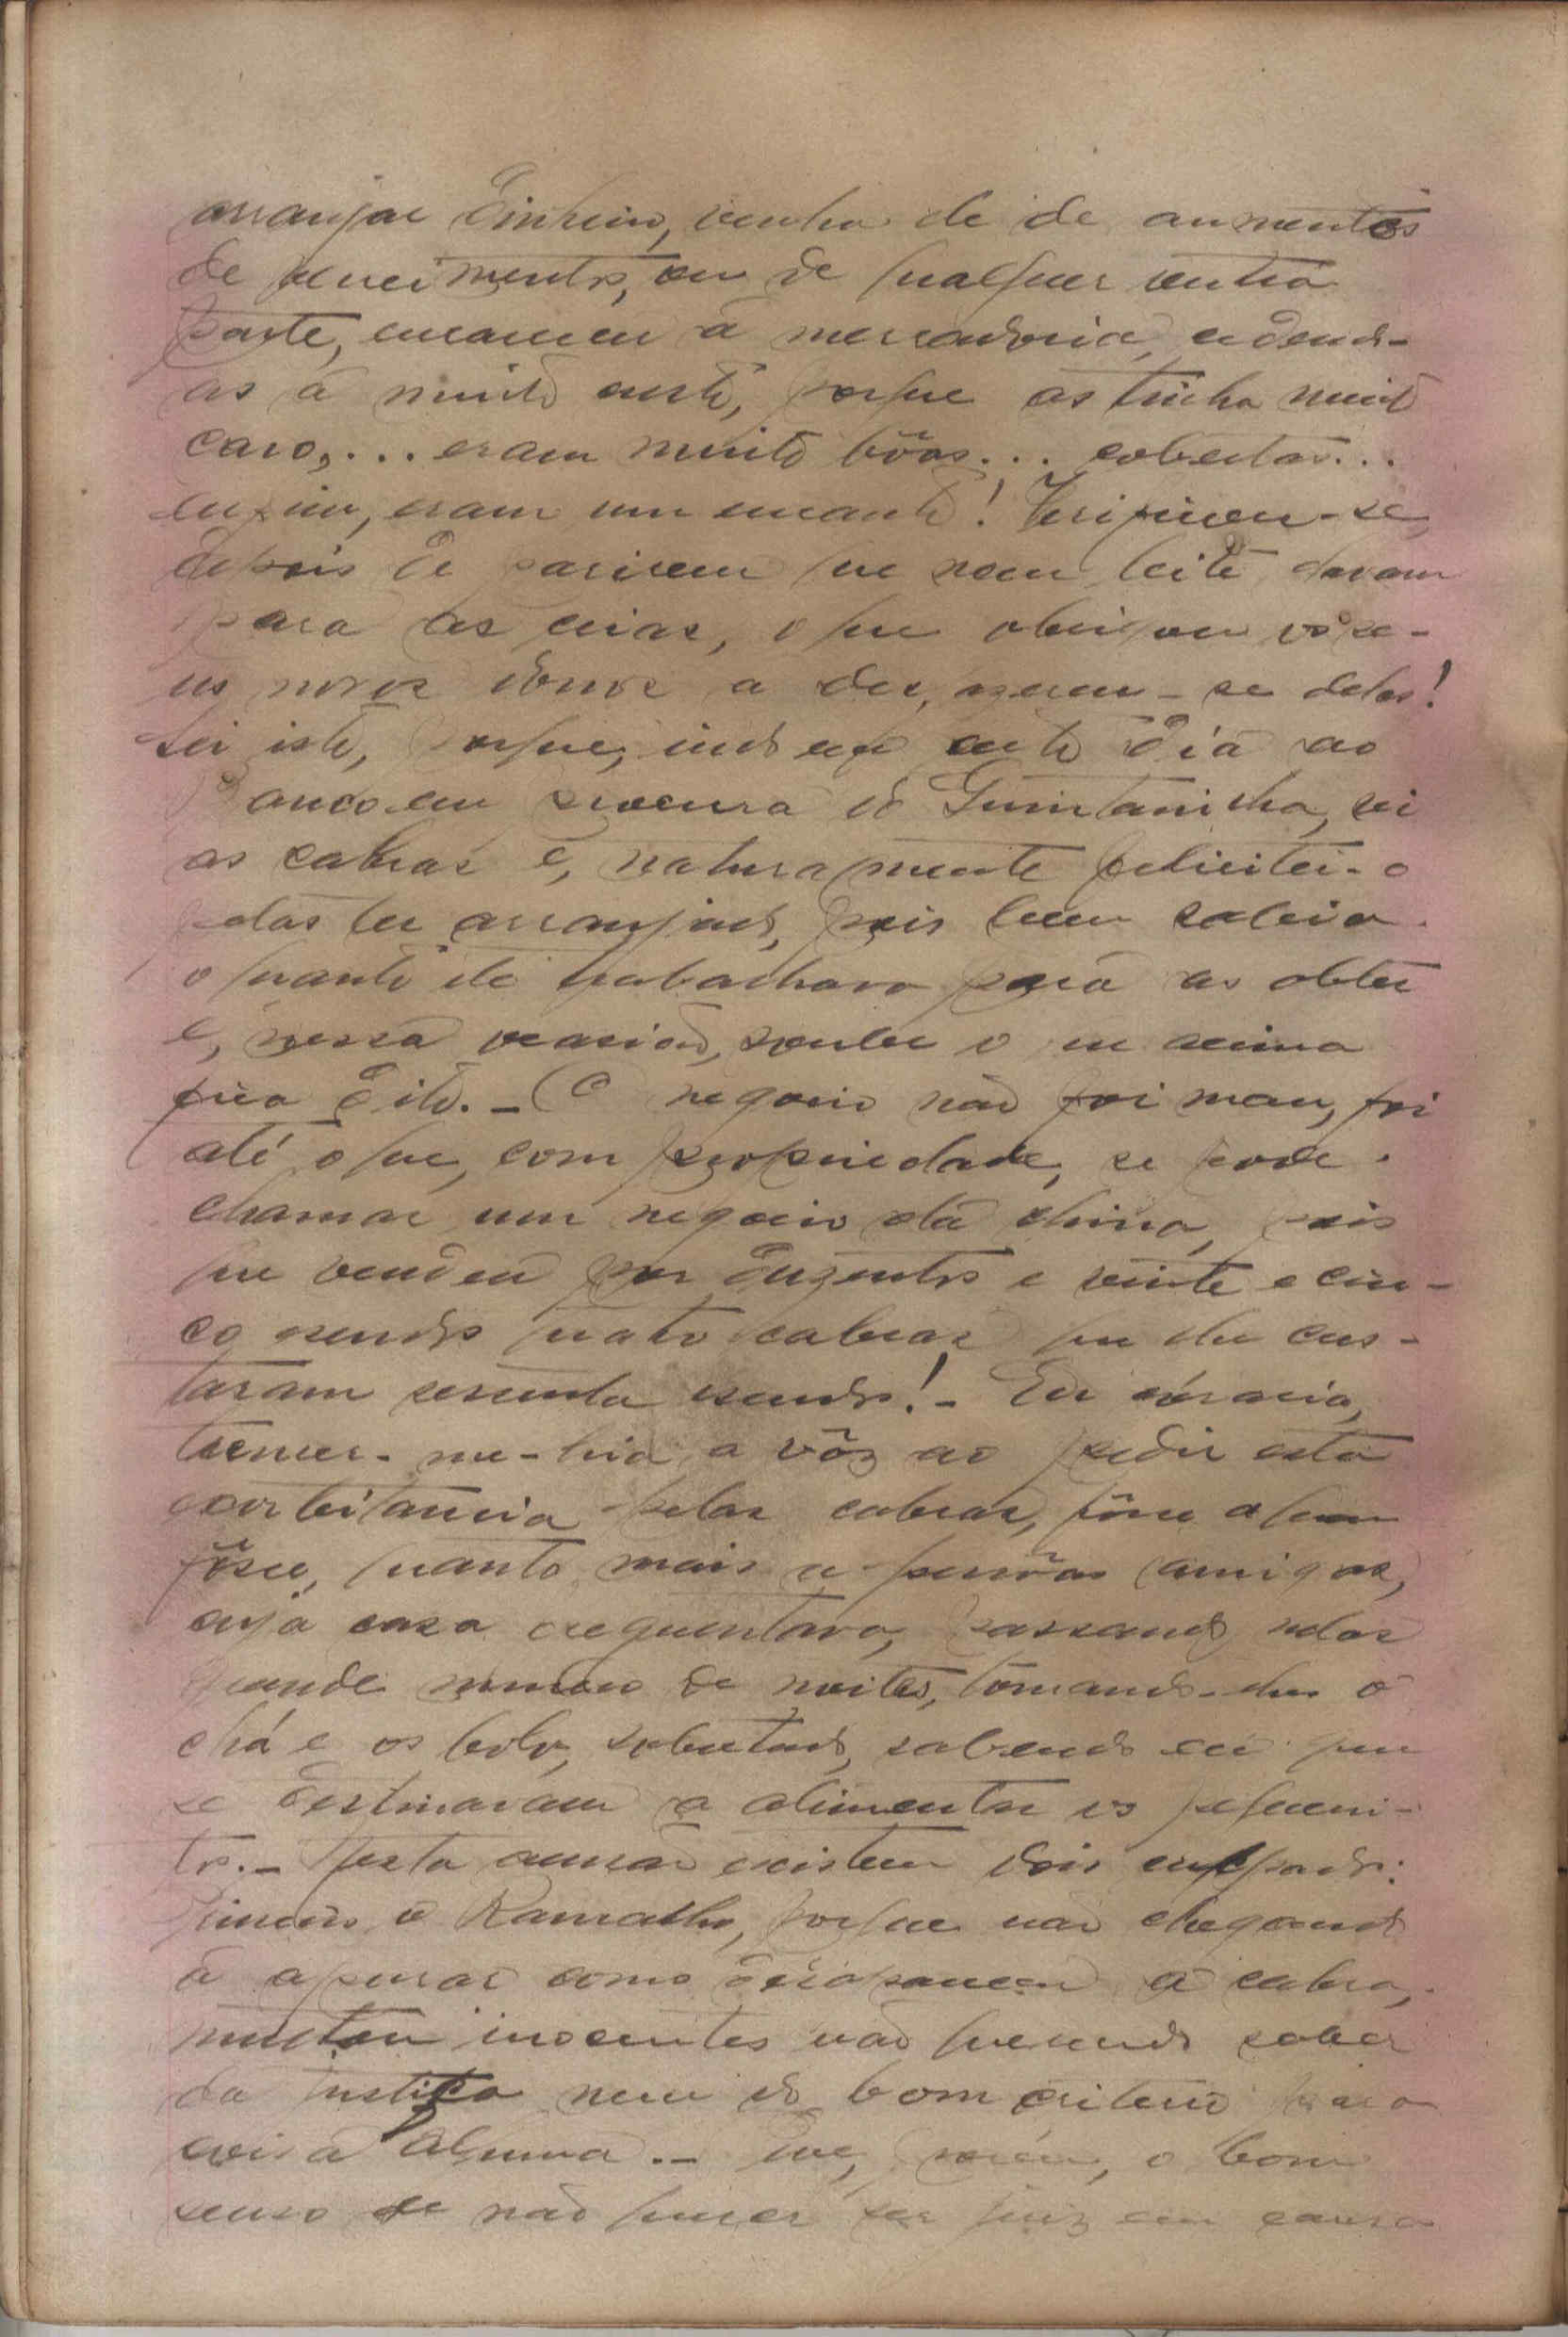 arranjar dinheiro, venha ele de aumentos
de vencimentos, ou de qualquer outra
parte, encareceu a mercadoria, cedendo-
as a muito custo, porque as tinha muito
caro,... eram muito bôas... cobertas...
enfim, eram um encanto! Verificou-se,
depois de parirem que nem leite davam
para as crias, o que obrigou os se-
us novos donos a desfazerem-se delas!
Sei isto, porque, indo eu certo dia ao
Banco em procura do Quintanilha, vi
as cabras e, naturalmente felicitei-o
pelas ter arranjado, pois bem sabia
o quanto ele trabalhara para as obter
e, nessa ocasião, soube o que acima
fica dito. - O negocio não foi mau, foi
até o que, com propriedade, se pode
chamar um negocio da china, pois
que vendeu por duzentos e vinte e cin-
co escudos quatro cabras que lhe cus-
taram sessenta escudos! - Eu
tremer-me-hia a vôz ao pedir esta
exorbitancia pelas cabras, fôsse a quem
fôsse, quanto mais a pessôas amigas,
cuja casa frequentava, passando nelas
grande numero de noites, tomando-lhes o
chá e os bolos, sobretudo, sabendo eu que
se destinavam a alimentar os pequeni-
tos. - Nesta acusação existem dois culpados:
primeiro o Ramalho, porque não chegando
a apurar como desapareceu a cabra,
multou inocentes não querendo saber
da justiça nem do bom criterio para
coisa alguma. - Teve, porém, o bom
senso de não querer ser juiz em causa